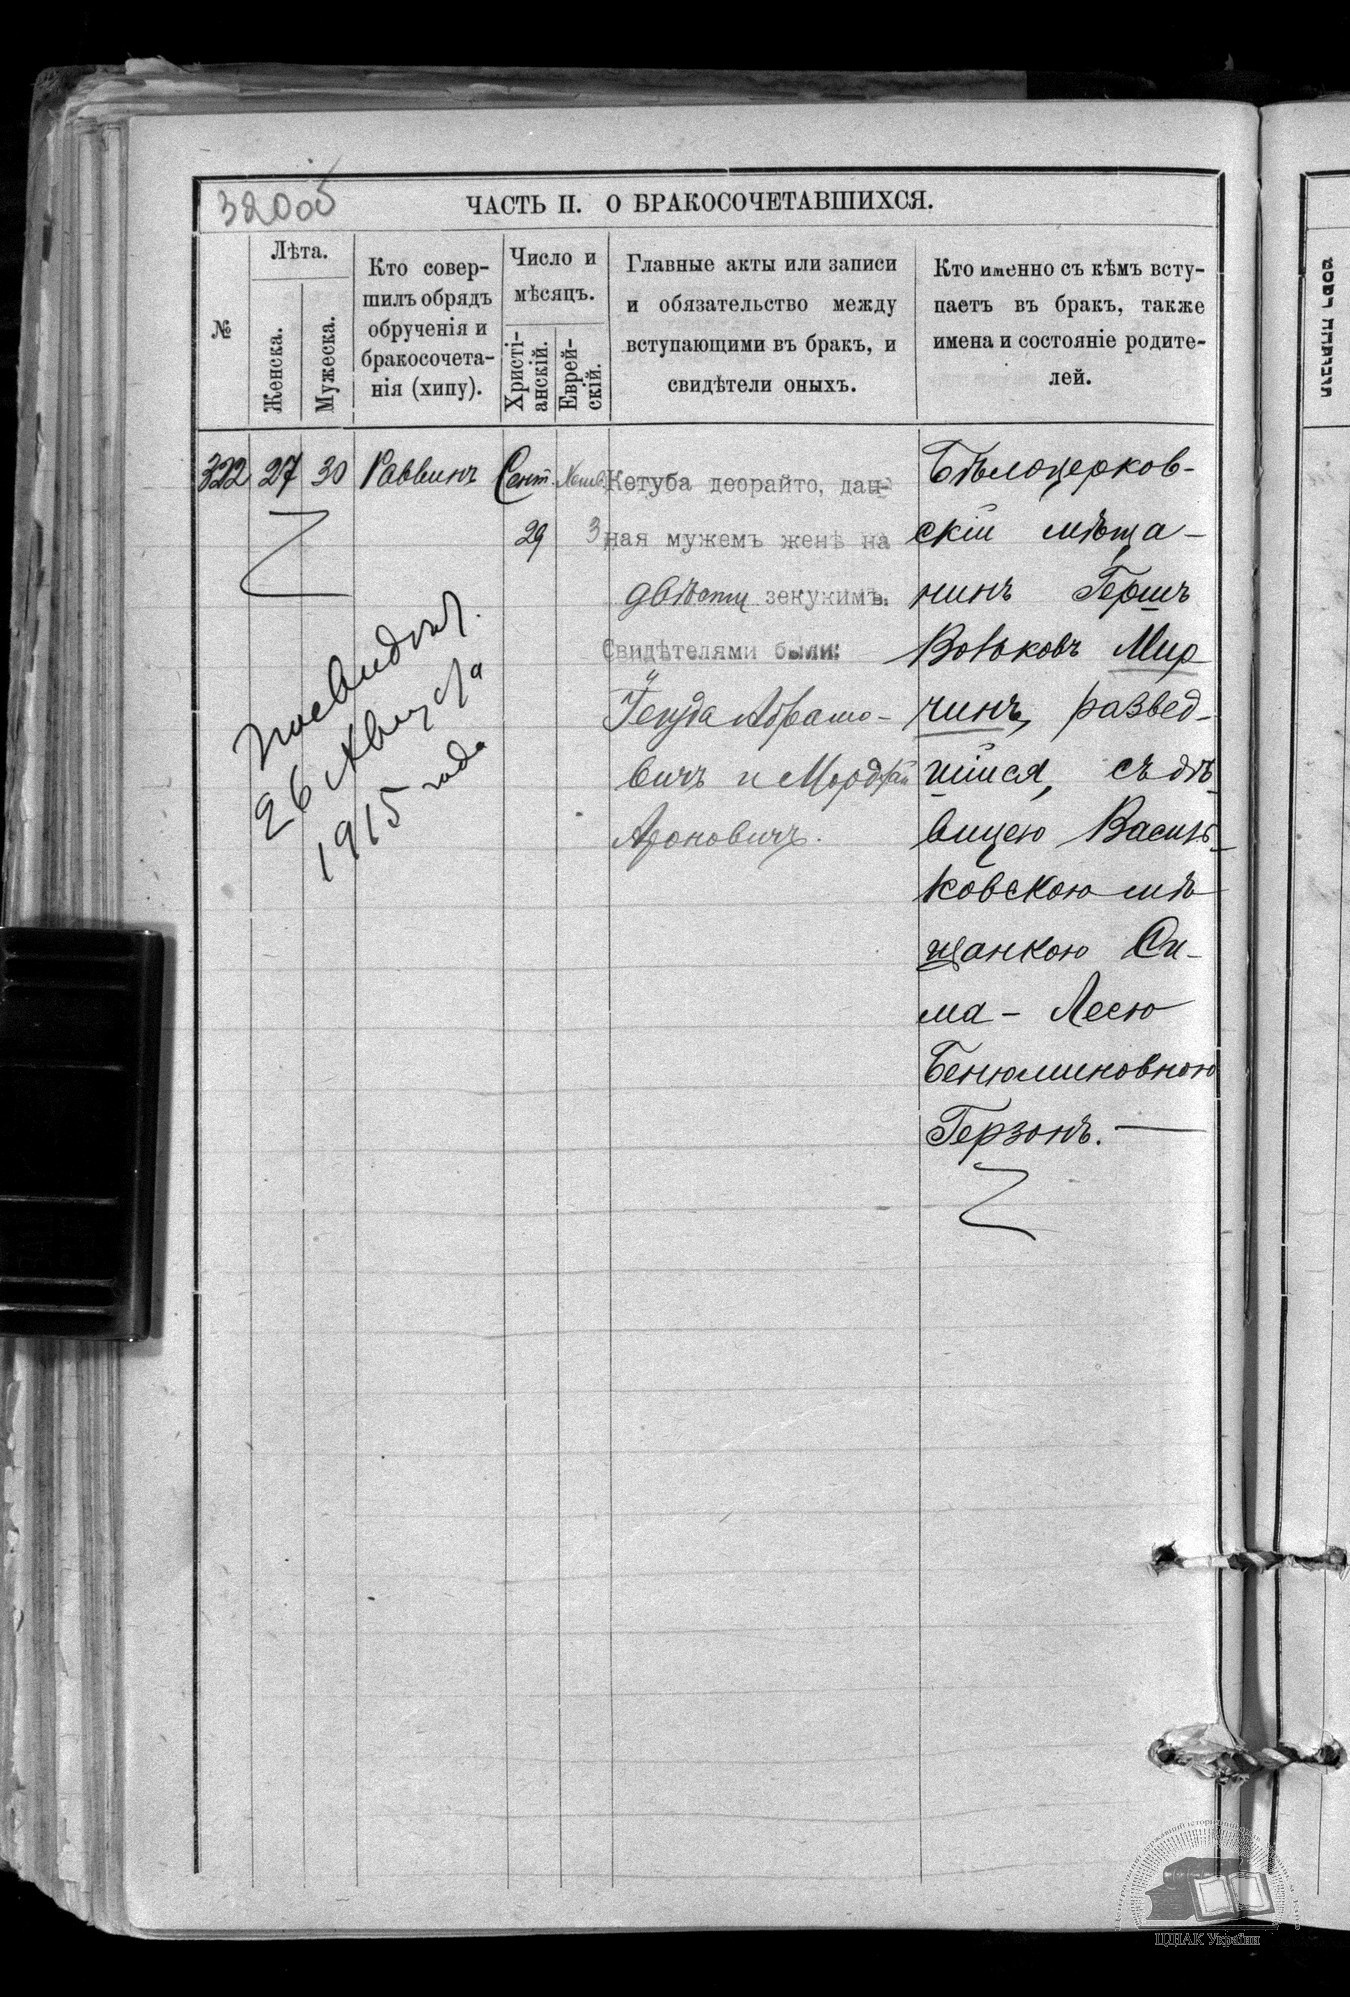 32005
ЧАСТЬ II. О БРАКОСОЧЕТАВШИХСЯ.
№
Лѣта.
Женска.
Мужеска.
Кто совер-
шилъ обрядъ
обрученія и
бракосочета-
нія (хипу).
Число и
мѣсяцъ.
Христі-
анскій.
Еврей-
скій.
Главные акты или записи
и обязательство между
вступающими въ бракъ, и
свидѣтели оныхъ.
Кто именно съ кѣмъ всту-
паетъ въ бракъ, также
имена и состояніе родите-
лей.
322 27 30 Раввинъ Сент. 29 3
Кетуба деорайто, дан-
ная мужемъ женѣ на
двѣсти зекукимъ.
Свидѣтелями были:
Іегуда Абрамо-
вичъ и Мордхай
Ароновичъ.
Бѣлоцерков-
скій мѣща-
нинъ Гершъ
Вольковъ Мир
чинъ, развед-
шійся, съ дѣ-
вицею Василь-
ковскою мѣ
щанкою Си-
ма - Лесю
Бенюминовною
Герзонъ.
26 Августа
1915 года
ЦДІАК України